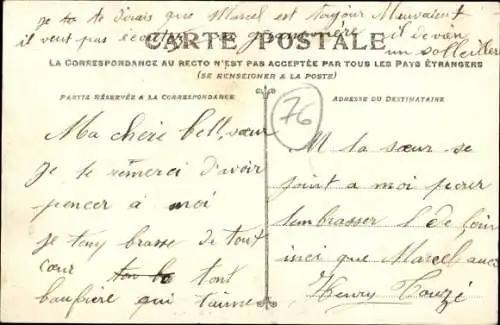 je te dirais que Marcel est toujour Mauvaient
il veut pas écouter sa grammere il devien
un solleiller
CARTE POSTALE
LA CORRESPONDANCE AU RECTO N'EST PAS ACCEPTÉE PAR TOUS LES PAYS ÉTRANGERS
(SE RENSEIGNER À LA POSTE)
PARTIE RÉSERVÉE A LA CORRESPONDANCE
ADRESSE DU DESTINATAIRE
76
Ma chère bell sœur
je te remerci d'avoir
pencer à moi
je tany brasse de tout
cœur tont
baufiere qui t'aime
M la sœur se
joint a moi pour
tembrasser de loin
inci que Marcel
Henry Touzé